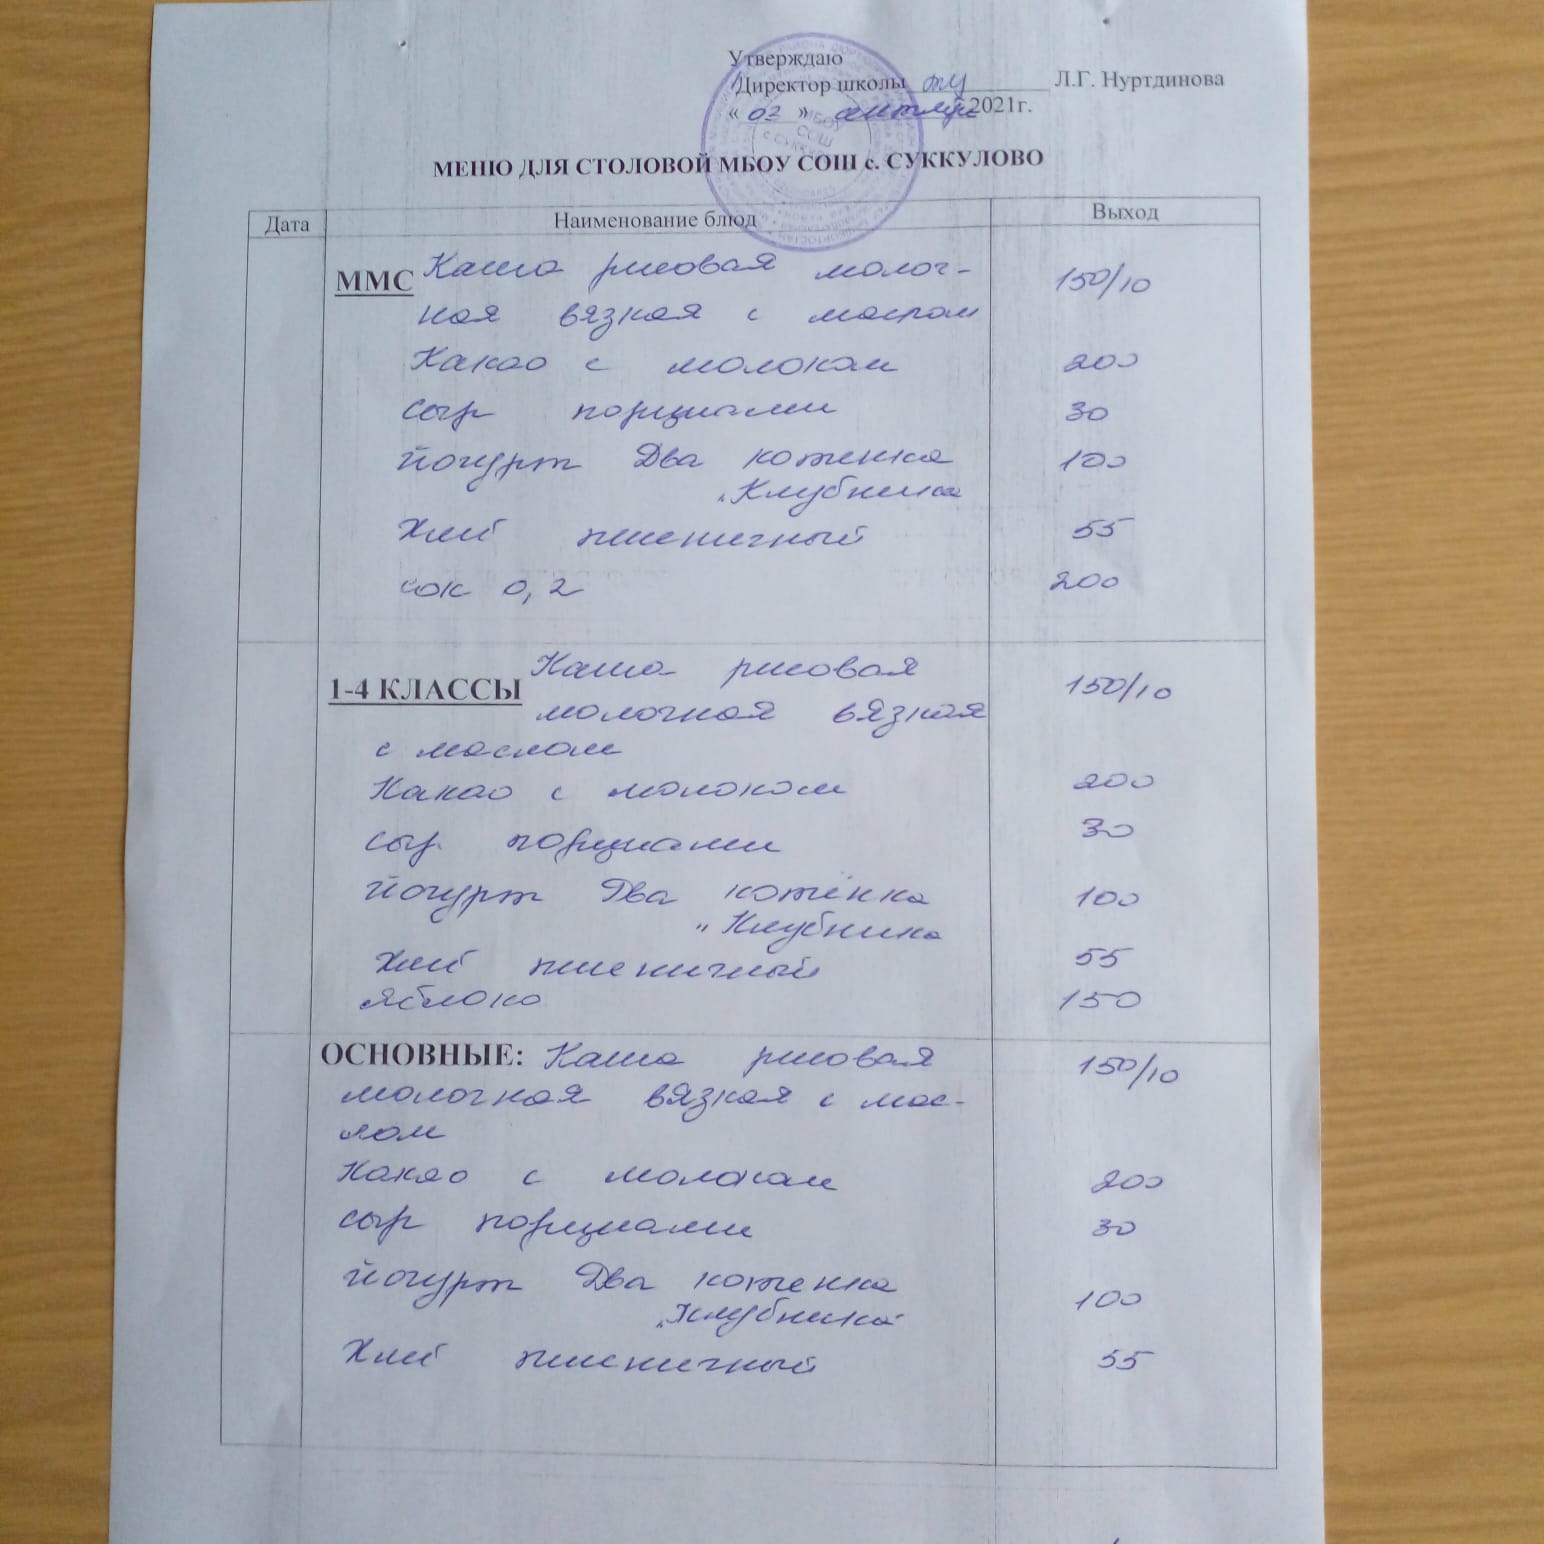 Утверждаю
Директор школы Л.Г. Нуртдинова
« 03 » сентября 2021г.
МЕНЮ ДЛЯ СТОЛОВОЙ МБОУ СОШ с. СУККУЛОВО
Дата Наименование блюд Выход
ММС Каша рисовая молоч- 150/10
ная вязкая с маслом
Какао с молоком 200
сыр порциями 30
йогурт Два котенка 100
"Клубника
Хлеб пшеничный 55
сок 0,2 200
1-4 КЛАССЫ Каша рисовая 150/10
молочная вязкая
с маслом
Какао с молоком 200
сыр порциями 30
йогурт Два котёнка 100
"Клубника
Хлеб пшеничный 55
яблоко 150
ОСНОВНЫЕ: Каша рисовая 150/10
молочная вязкая с мас-
лом
Какао с молоком 200
сыр порциями 30
йогурт Два котенка 100
"Клубника"
Хлеб пшеничный 55